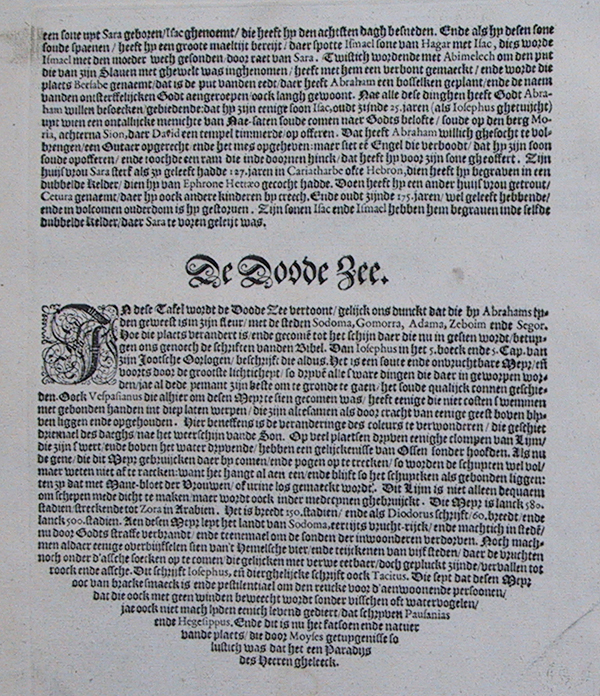 een sone uyt Sara geboren/Isac ghenoemt/ die heeft hy den achtsten dagh besneden. Ende als hy desen sone
soude spaenen / heeft hy een groote maeltijt bereyt/ daer spotte Ismael sone van Hagar met Isac, dies worde
Ismael met den moeder wech gesonden door raet van Sara. Twistich wordende met Abimelech om den put
die van zijn Slauen met ghewelt was inghenomen / heeft met hem een verbont gemaeckt / ende worde die
plaets Bersabe genaemt/dat is de put vanden eedt/ daer heeft Abraham een bosselken geplant/ ende de naem
vanden onsterffelijcken Godt aengeropen/ oock langh gewoont. Nae alle dese dinghen heeft Godt Abra-
ham willen besoecken/gebiedende dat hy zijn eenige soon Isac, oudt zijnde 25. jaren (als Iosephus ghetuicht)
uyt wien een ontallijcke menichte van Nae-saten soude comen naer Godts belofte / soude op den berg Mo-
ria, achterna Sion, daer David een tempel timmerde/ op offeren. Dat heeft Abraham willich ghesocht te vol-
brengen/ een Outaer opgerecht/ ende het mes opgeheven: maer siet ee Engel die verboodt/ dat hy zijn soon
soude opofferen/ ende toochde een ram die inde doornen hinck/ dat heeft hy voor zijn sone gheoffert. Zijn
huisvrou Sara sterf als zy geleeft hadde 127. jaren in Cariatharbe ofte Hebron, dien heeft hy begraven in een
dubbelde kelder/ dien hy van Ephrone Hettæo gecocht hadde. Doen heeft hy een ander huisvrou getrout/
Cetura genaemt/ daer hy oock andere kinderen by creech. Ende oudt zijnde 175. jaren/ wel geleeft hebbende/
ende in volcomen ouderdom is hy gestorven. Zijn sonen Isac ende Ismael hebben hem begraven inde selfde
dubbelde kelder/ daer Sara te voren geleyt was.
De Doode Zee.
IN dese Tafel wordt de Doode Zee vertoont/ gelijck ons dunckt dat die by Abrahams ty-
den geweest is in zijn fleur/ met de steden Sodoma, Gomorra, Adama, Zeboim ende Segor.
Hoe die plaets verandert is/ ende gecomē tot het schijn daer die nu in gesien wordt/ betuy-
gen ons genoech de schriften vanden Bibel. Van Iosephus in het 5. boeck ende 5. Cap. van
zijn Jootsche Oorlogen, beschrijft die aldus. Het is een soute ende onvruchtbare Meyr/ eñ
voorts door de groote lichticheyt/ so dryvē alle sware dingen die daer in geworpen wor-
den/jae al dede yemant zijn beste om te gronde te gaen/ het soude qualijck konnen geschie-
den. Oock Vespasianus die alhier om desen Meyr te sien gecomen was/ heeft eenige die niet costen swemmen
met gebonden handen int diep laten werpen / die zijn altesamen als door cracht van eenige geest boven bly-
ven liggen ende opgehouden. Hier beneffens is de veranderinge des coleurs te verwonderen / die geschiet
driemael des daeghs/ nae het weerschijn vande Son. Op veel plaetsen dryven eenighe clompen van Lijm/
die zijn swert/ ende boven het water dryvende/ hebben een gelijckenisse van Ossen sonder hoofden. Als nu
de gene/ die dit Meyr gebruijcken daer by comen/ ende pogen op te trecken/ so worden de schuyten wel vol/
maer weten niet af te raecken/ want het hangt al aen een/ ende blijft so het schuytken als gebonden liggen:
ten zy dat met Mane-bloet der Vrouwen/ of urine los gemaeckt wordt. Dit Lijm is niet alleen bequaem
om schepen mede dicht te maken/ maer wordt oock inder medecynen ghebruijckt. Dit Meyr is lanck 580.
stadien/ streckende tot Zora in Arabien. Het is breedt 150. stadien/ ende als Diodorus schrijft/ 60. breedt/ ende
lanck 500. stadien. Aen desen Meyr leyt het landt van Sodoma, eertijts vrucht-rijck/ ende machtich in stedē/
nu door Godts straffe verbrandt/ ende t'eenemael om de sonden der inwoonderen verdorven. Noch mach-
men aldaer eenige overblijfselen sien van't Hemelsche vier/ ende teijckenen van vijf steden/ daer de vruchten
noch onder d'assche soecken op te comen/ die gelijcken met verwe eetbaer/ doch gepluckt zijnde/ vervallen tot
roock ende assche. Dit schrijft Iosephus, eñ diergelijcke schrijft oock Tacitus. Die seyt dat desen Meyr
oot van bracke smaeck is/ ende pestilentiael om den reucke voor d'aenwoonende persoonen/
dat die oock met geen winden beweecht wordt/ sonder visschen oft watervogelen/
jae oock niet mach lyden eenich levend gediert/ dat schryven Pausanias
ende Hegesippus. Ende dit is nu het fatsoen ende natuer
vande plaets/ die door Moyses getuygenisse so
lustich was dat het een Paradijs
des Heeren gheleeck.